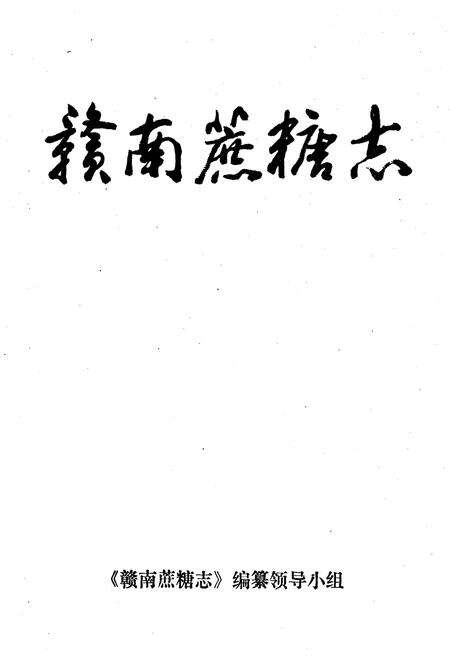 赣南蔗糖志
《赣南蔗糖志》编纂领导小组